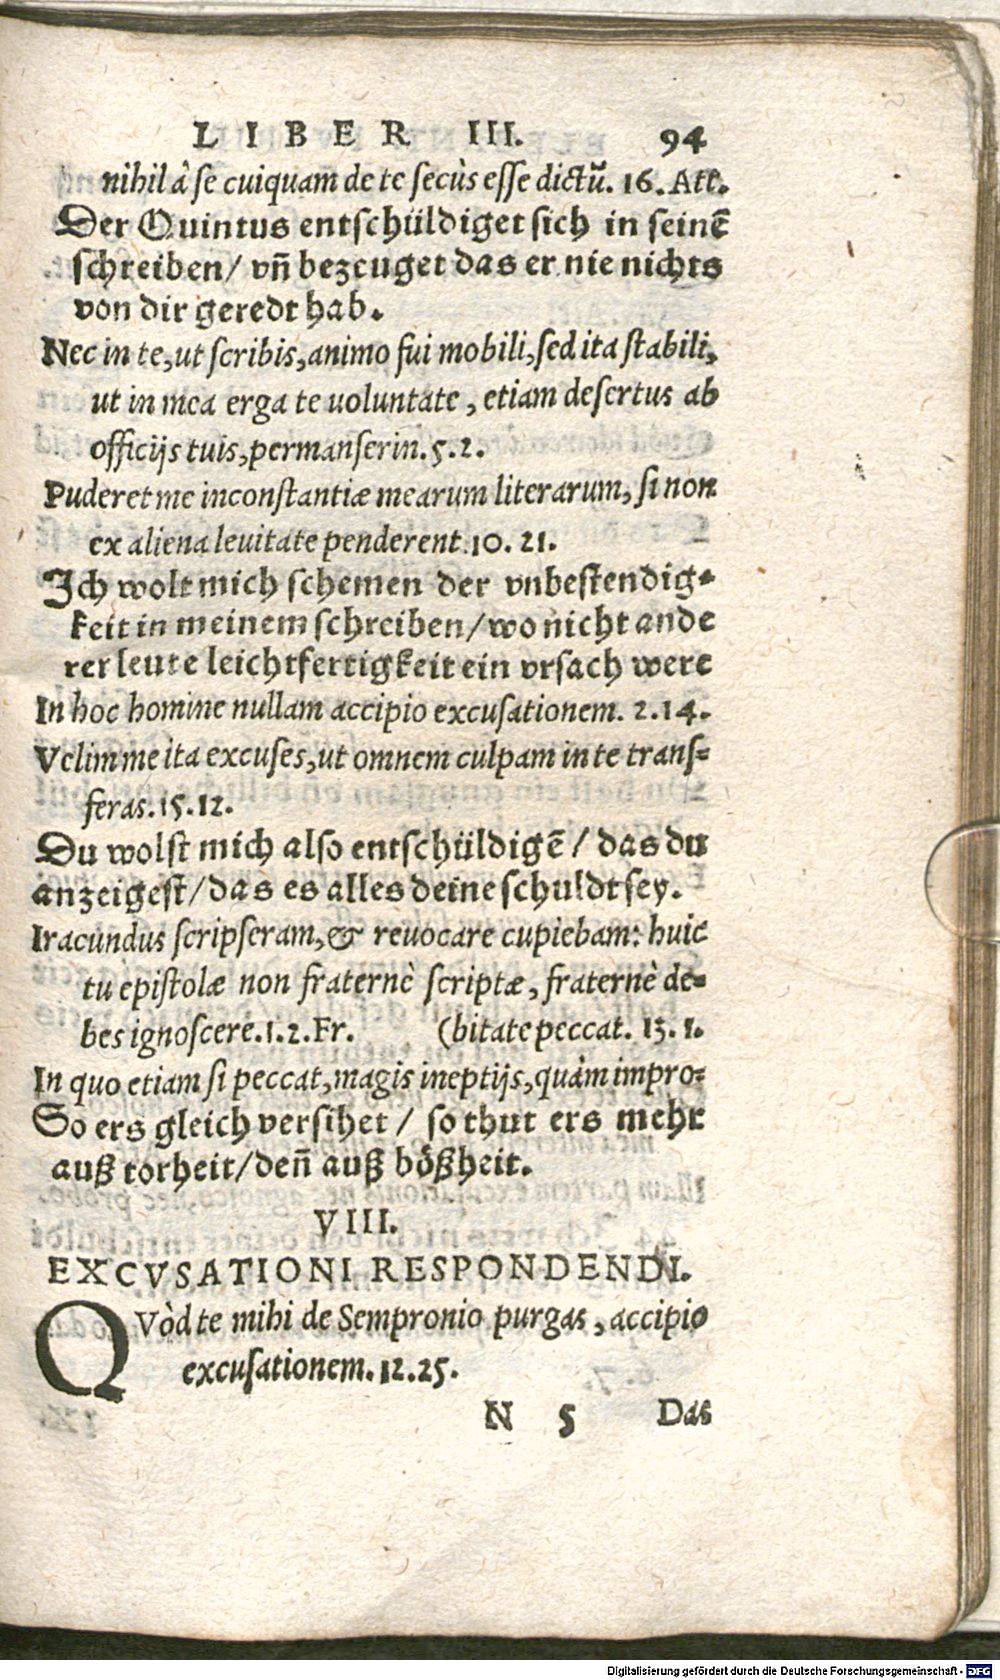 LIBER III. 94
nihil â se cuiquam de te secùs esse dictũ. 16. Att.
Der Quintus entschüldiget sich in seinẽ
schreiben/ vñ bezeuget das er nie nichts
von dir geredt hab.
Nec in te, ut scribis, animo fui mobili, sed ita stabili,
ut in mea erga te uoluntate, etiam desertus ab
officijs tuis, permanserin. 5. 2.
Puderet me inconstantiæ mearum literarum, si non
ex aliena leuitate penderent. 10. 21.
Ich wolt mich schemen der vnbestendig-
keit in meinem schreiben/ wo nicht ande
rer leute leichtfertigkeit ein vrsach were
In hoc homine nullam accipio excusationem. 2. 14.
Velim me ita excuses, ut omnem culpam in te trans-
feras. 15. 12.
Du wolst mich also entschüldigẽ/ das du
anzeigest/ das es alles deine schuldt sey.
Iracundus scripseram, & reuocare cupiebam: huic
tu epistolæ non fraternè scriptæ, fraternè de-
bes ignoscere. 1. 2. Fr. (bitate peccat. 13. 1.
In quo etiam si peccat, magis ineptijs, quàm impro-
So ers gleich versihet/ so thut ers mehr
auß torheit/ deñ auß bößheit.
VIII.
EXCVSATIONI RESPONDENDI.
QVòd te mihi de Sempronio purgas, accipio
excusationem. 12. 25.
N 5 Das
Digitalisierung gefördert durch die Deutsche Forschungsgemeinschaft - DFG